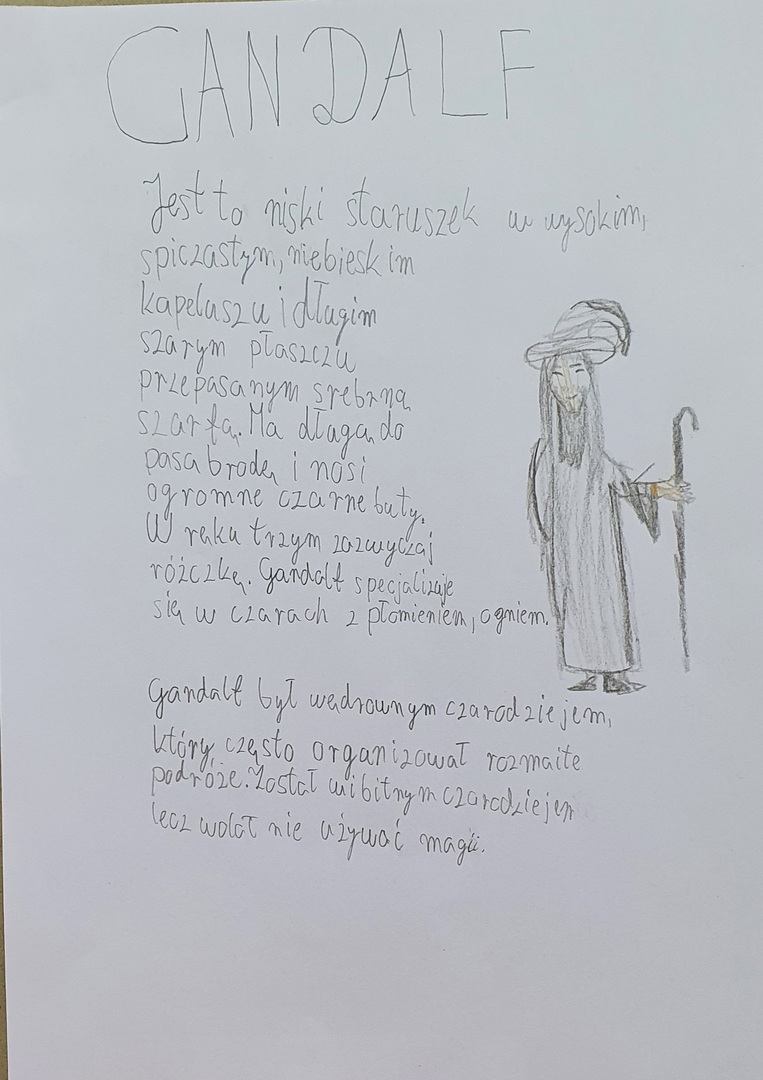 GANDALF
Jest to niski staruszek w wysokim,
spiczastym, niebieskim
kapeluszu i długim
szarym płaszczu
przepasanym srebrną
szarfą. Ma długą do
pasa brodę i nosi
ogromne czarne buty.
W ręku trzym zazwyczaj
różczkę. Gandalf specjalizuje
się w czarach z płomieniem, ogniem.
Gandalf był wędrownym czarodziejem,
który często organizował rozmaite
podróże. Został wibitnym czarodziejem
lecz wolał nie używać magii.